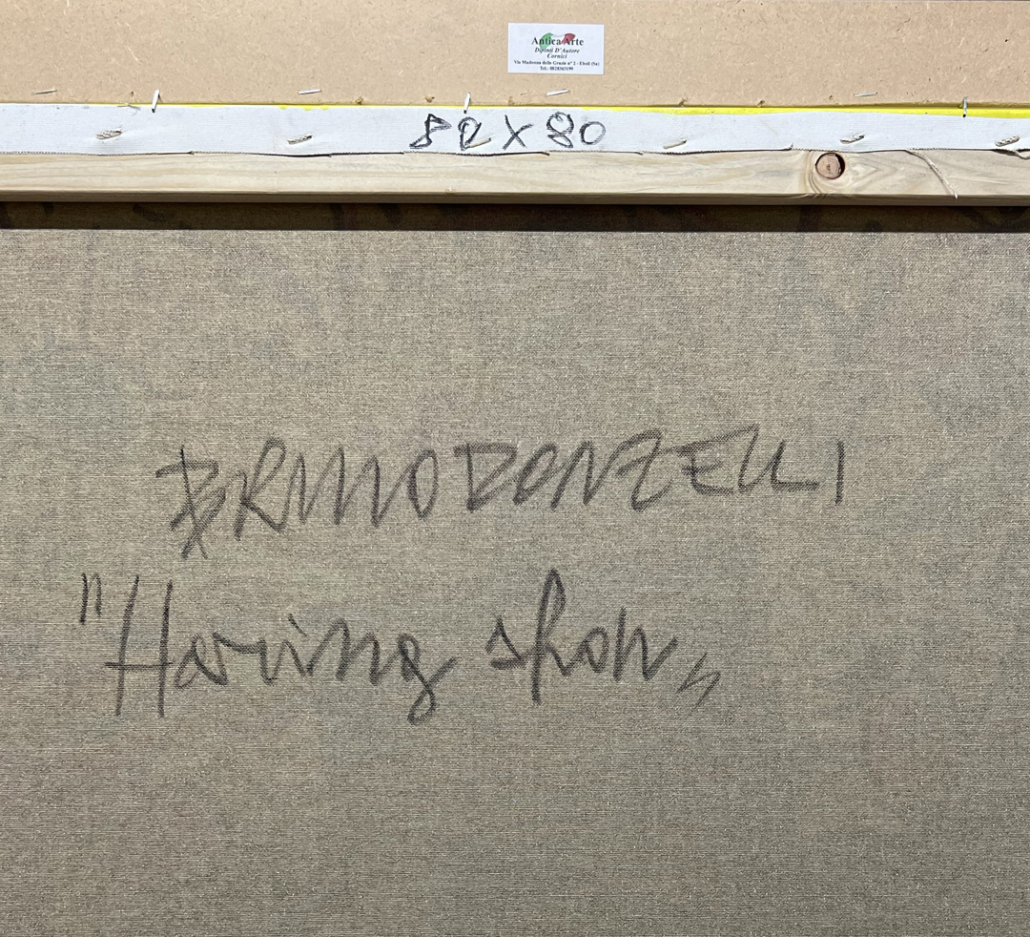 Antica Arte
Dipinti D'Autore
Cornici
Via Madonna delle Grazie n° 2 - Eboli (Sa)
82 X 80
BRUNO DONZELLI
"Haring show„